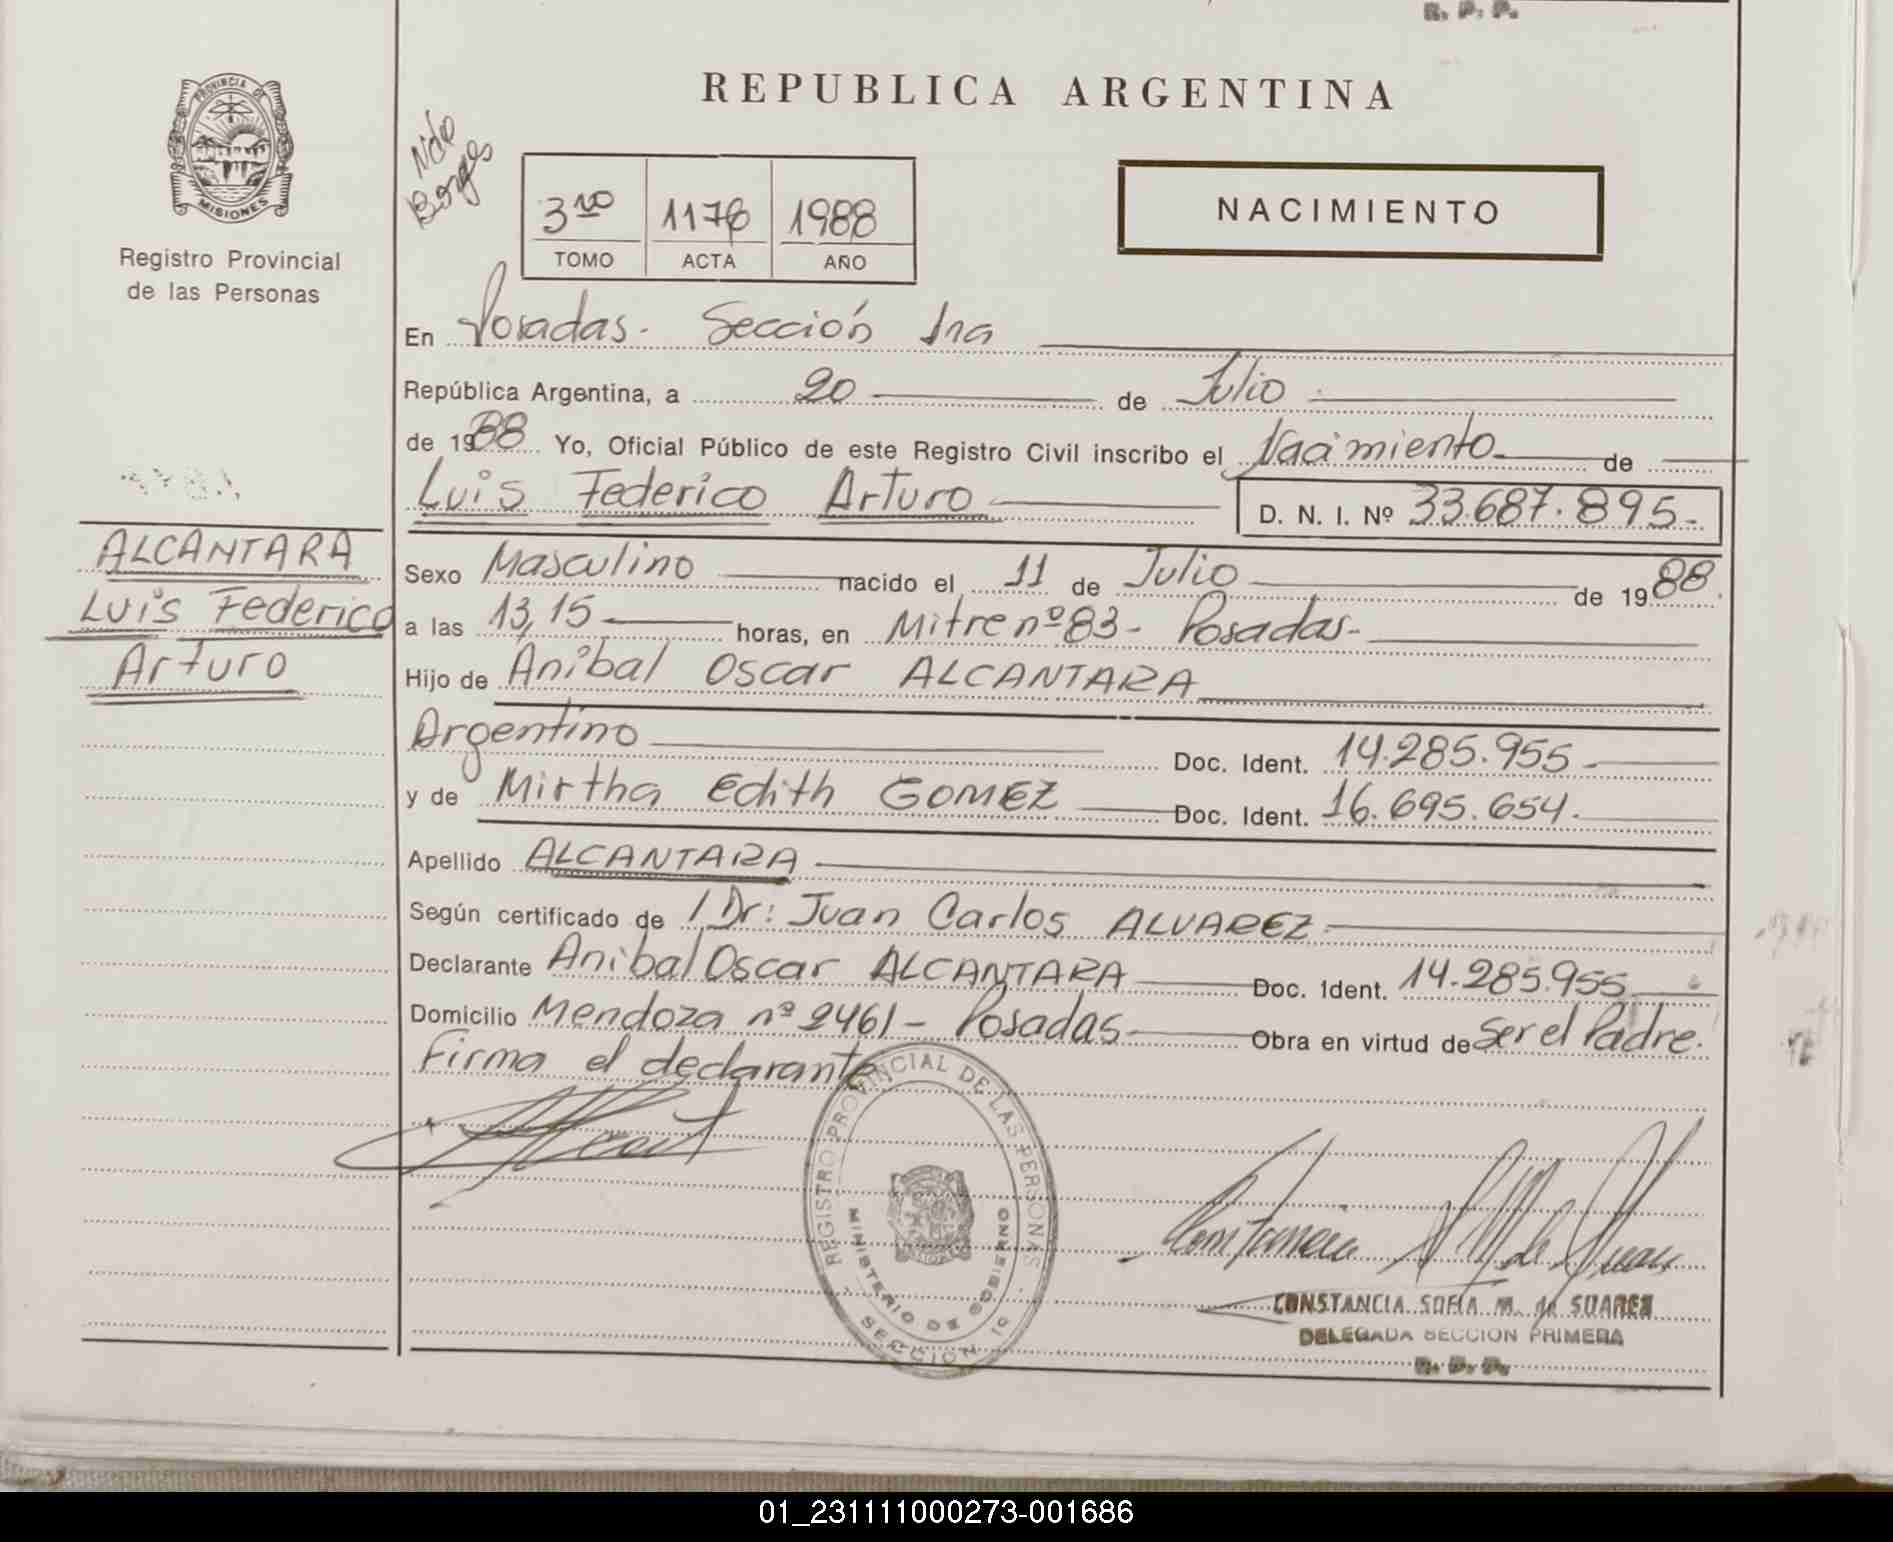 R. P. P.
PROVINCIA DE
MISIONES
Registro Provincial
de las Personas
REPUBLICA ARGENTINA
Nélo
Borges
3ro 1176 1988
TOMO ACTA AÑO
NACIMIENTO
En Posadas. Sección 1ra
República Argentina, a 20 de Julio
de 1988 Yo, Oficial Público de este Registro Civil inscribo el Nacimiento de
Luis Federico Arturo D. N. I. Nº 33.687.895
ALCANTARA
Luis Federico
Arturo
Sexo Masculino nacido el 11 de Julio de 1988
a las 13,15 horas, en Mitre nº 83 - Posadas
Hijo de Anibal Oscar ALCANTARA
Argentino Doc. Ident. 14.285.955
y de Mirtha Edith GOMEZ Doc. Ident. 16.695.654
Apellido ALCANTARA
Según certificado de / Dr: Juan Carlos ALVAREZ
Declarante Anibal Oscar ALCANTARA Doc. Ident. 14.285.955
Domicilio Mendoza nº 2461 - Posadas Obra en virtud de Ser el Padre.
Firma el declarante
REGISTRO PROVINCIAL DE LAS PERSONAS
MINISTERIO DE GOBIERNO
SECCION 1º
CONSTANCIA SOFIA M. de SUAREZ
DELEGADA SECCION PRIMERA
R. P. P.
01_231111000273-001686